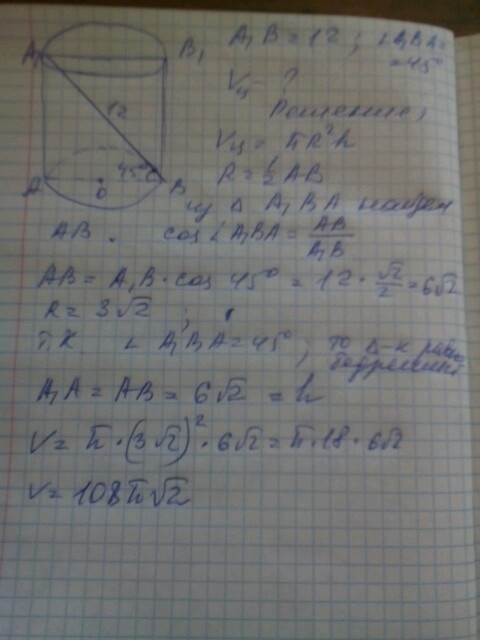 A₁ B₁ A₁B = 12 ; ∠A₁BA =
= 45°
Vц = ?
12 Решение,
Vц = πR²h
45° R = ½ AB
A O B из Δ A₁BA найдем
AB. cos∠A₁BA = AB/A₁B
AB = A₁B · cos 45° = 12 · √2/2 = 6√2
R = 3√2 ;
Т.К. ∠ A₁BA = 45° ; то Δ-к равно
бедренный
A₁A = AB = 6√2 = h
V = π · (3√2)² · 6√2 = π · 18 · 6√2
V = 108π√2